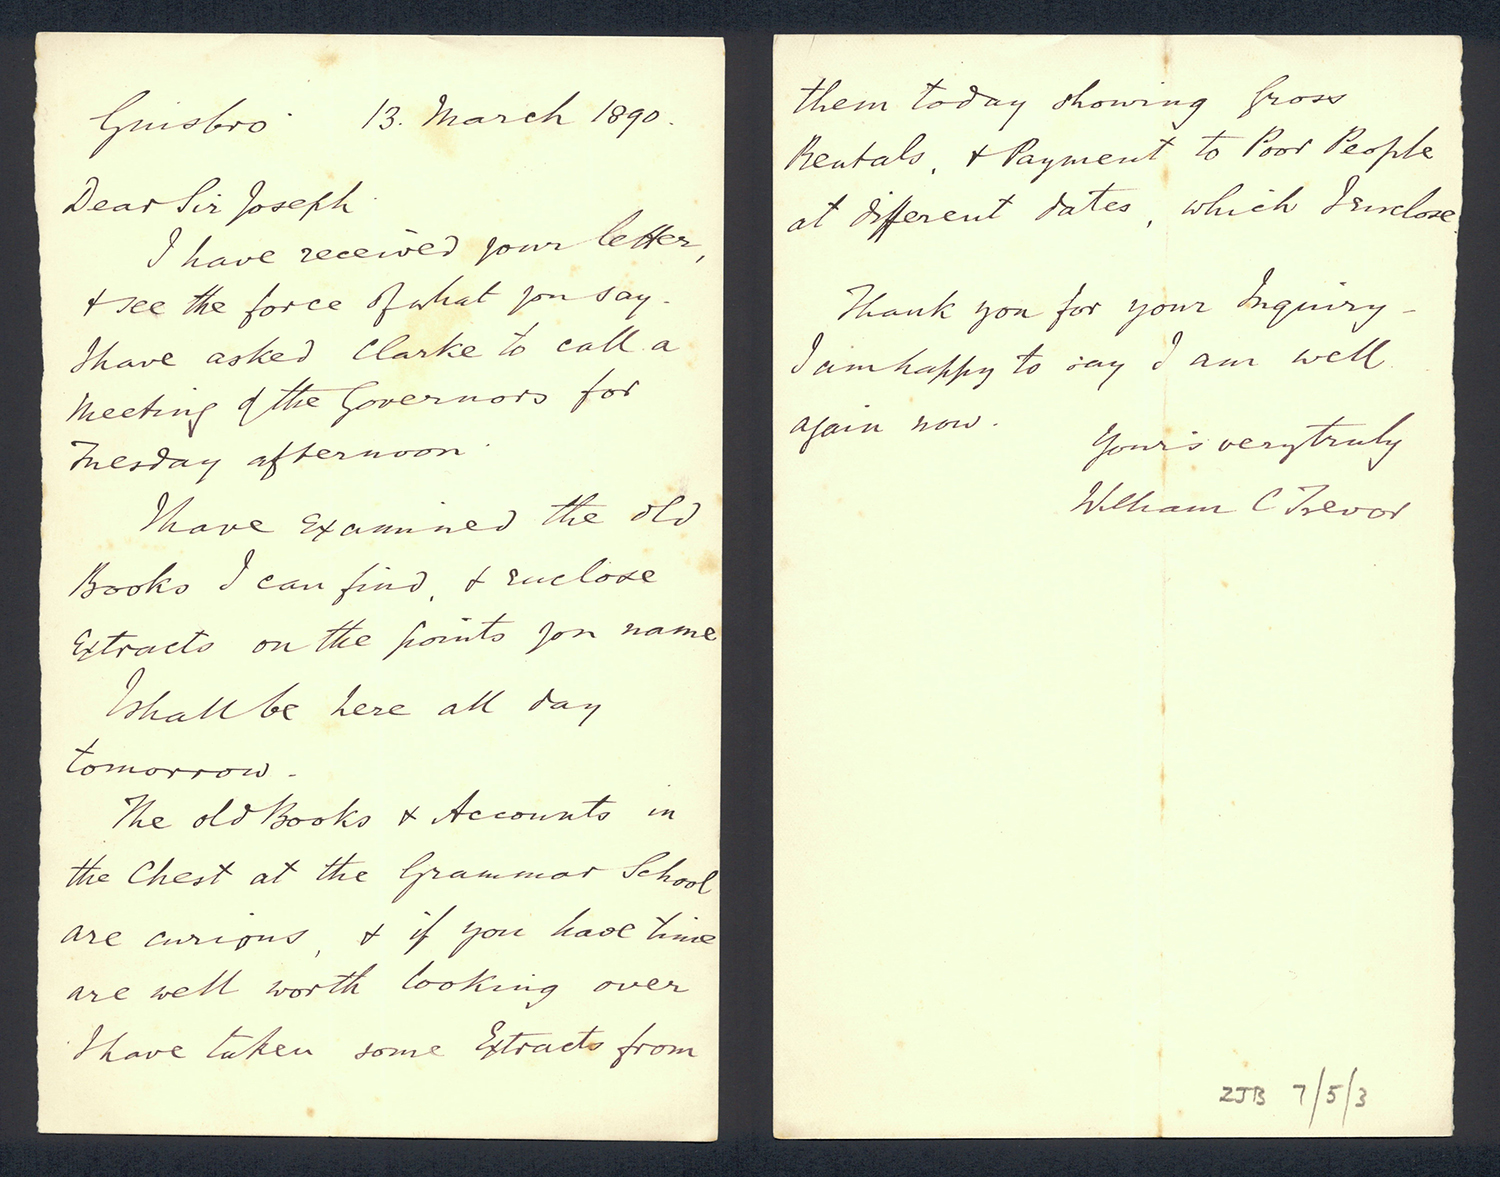 Guisbro' 13. March 1890.
Dear Sir Joseph
I have received your letter,
& see the force of what you say.
I have asked Clarke to call a
Meeting of the Governors for
Tuesday afternoon
I have Examined the old
Books I can find, & enclose
Extracts on the points you name
I shall be here all day
tomorrow.
The old Books & Accounts in
the Chest at the Grammar School
are curious, & if you have time
are well worth looking over
I have taken some Extracts from
them today showing Gross
Rentals, & Payment to Poor People
at different dates, which I enclose
Thank you for your Inquiry -
I am happy to say I am well
again now.
Your's very truly
William C Trevor
ZJB 7/5/3